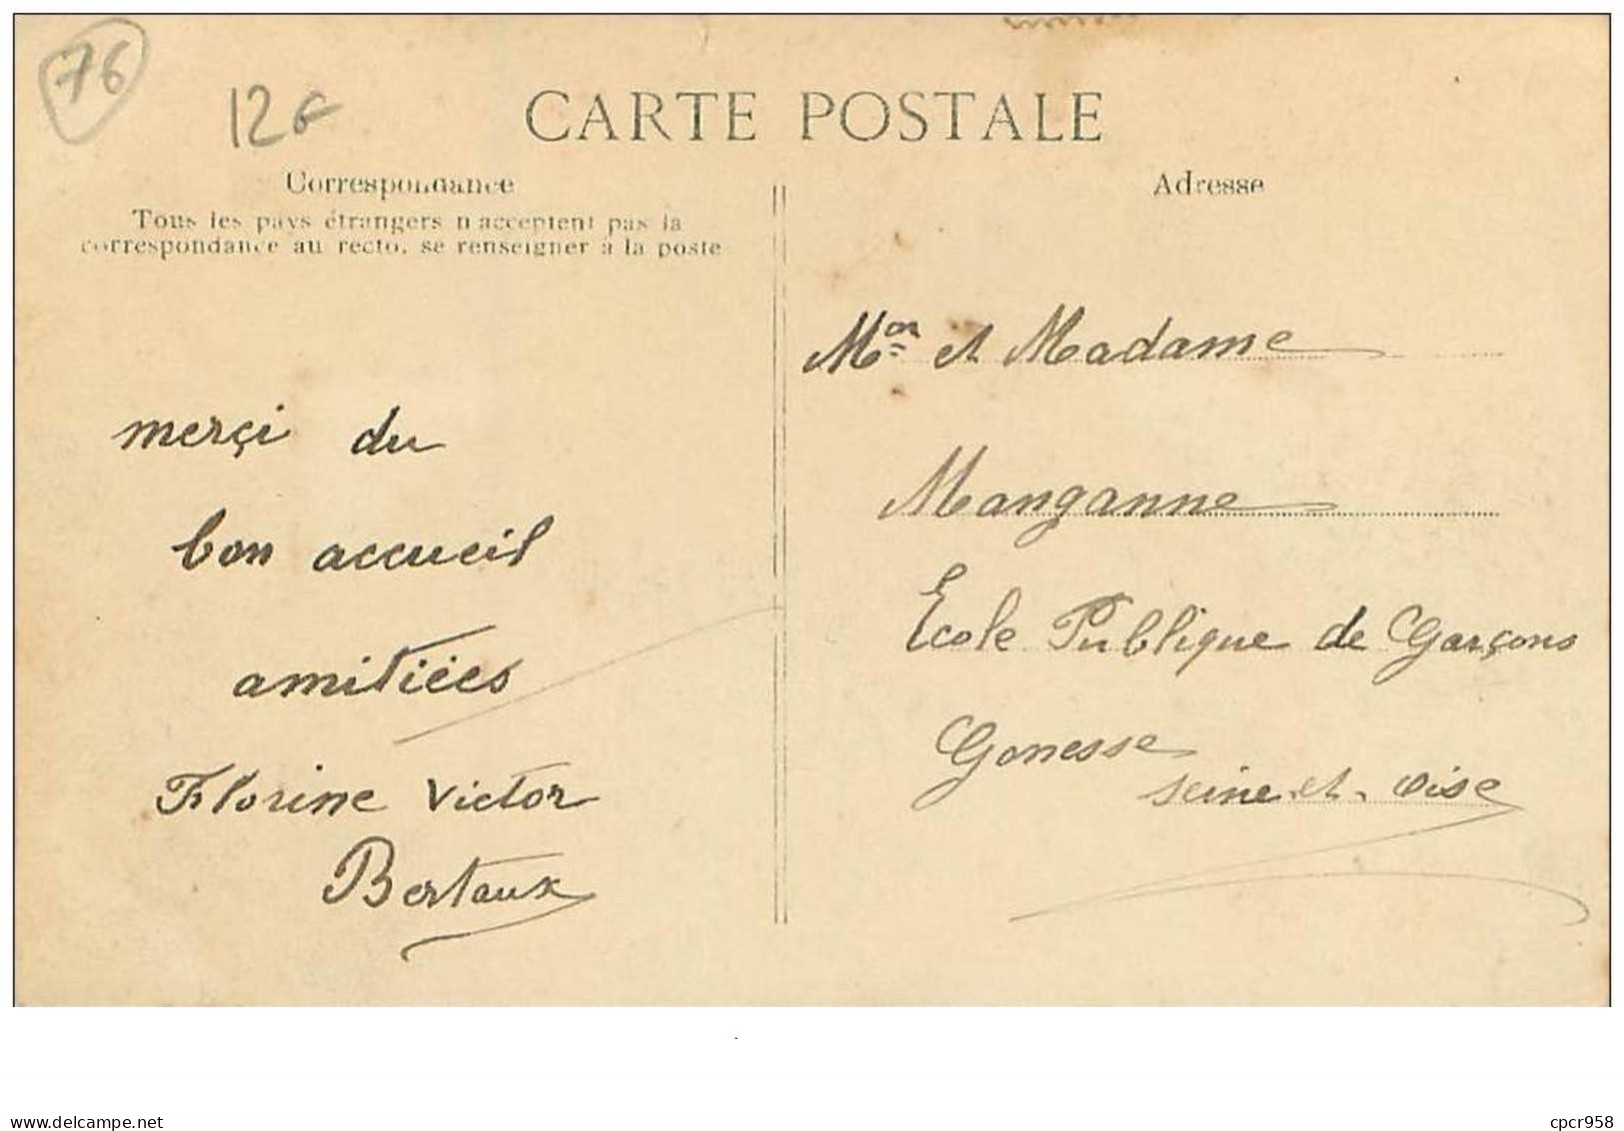 76
12€
CARTE POSTALE
Correspondance
Tous les pays étrangers n'acceptent pas la
correspondance au recto, se renseigner à la poste
merçi du
bon accueil
amitiées
Florine Victor
Bertaux
Adresse
Mon et Madame
Manganne
Ecole Publique de Garçons
Gonesse
Seine-et-Oise
delcampe.net
cpcr958